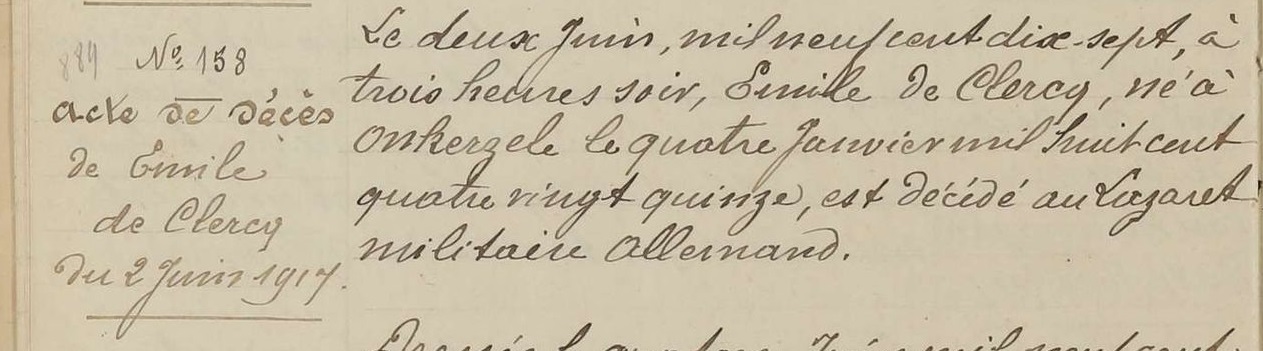 889
Nº 158
acte de décès
de Emile
de Clercq
du 2 Juin 1917.
Le deux Juin, mil neuf cent dix-sept, à
trois heures soir, Emile de Clercq, né à
Onkerzele le quatre Janvier mil huit cent
quatre vingt quinze, est décédé au Lazaret
militaire Allemand.